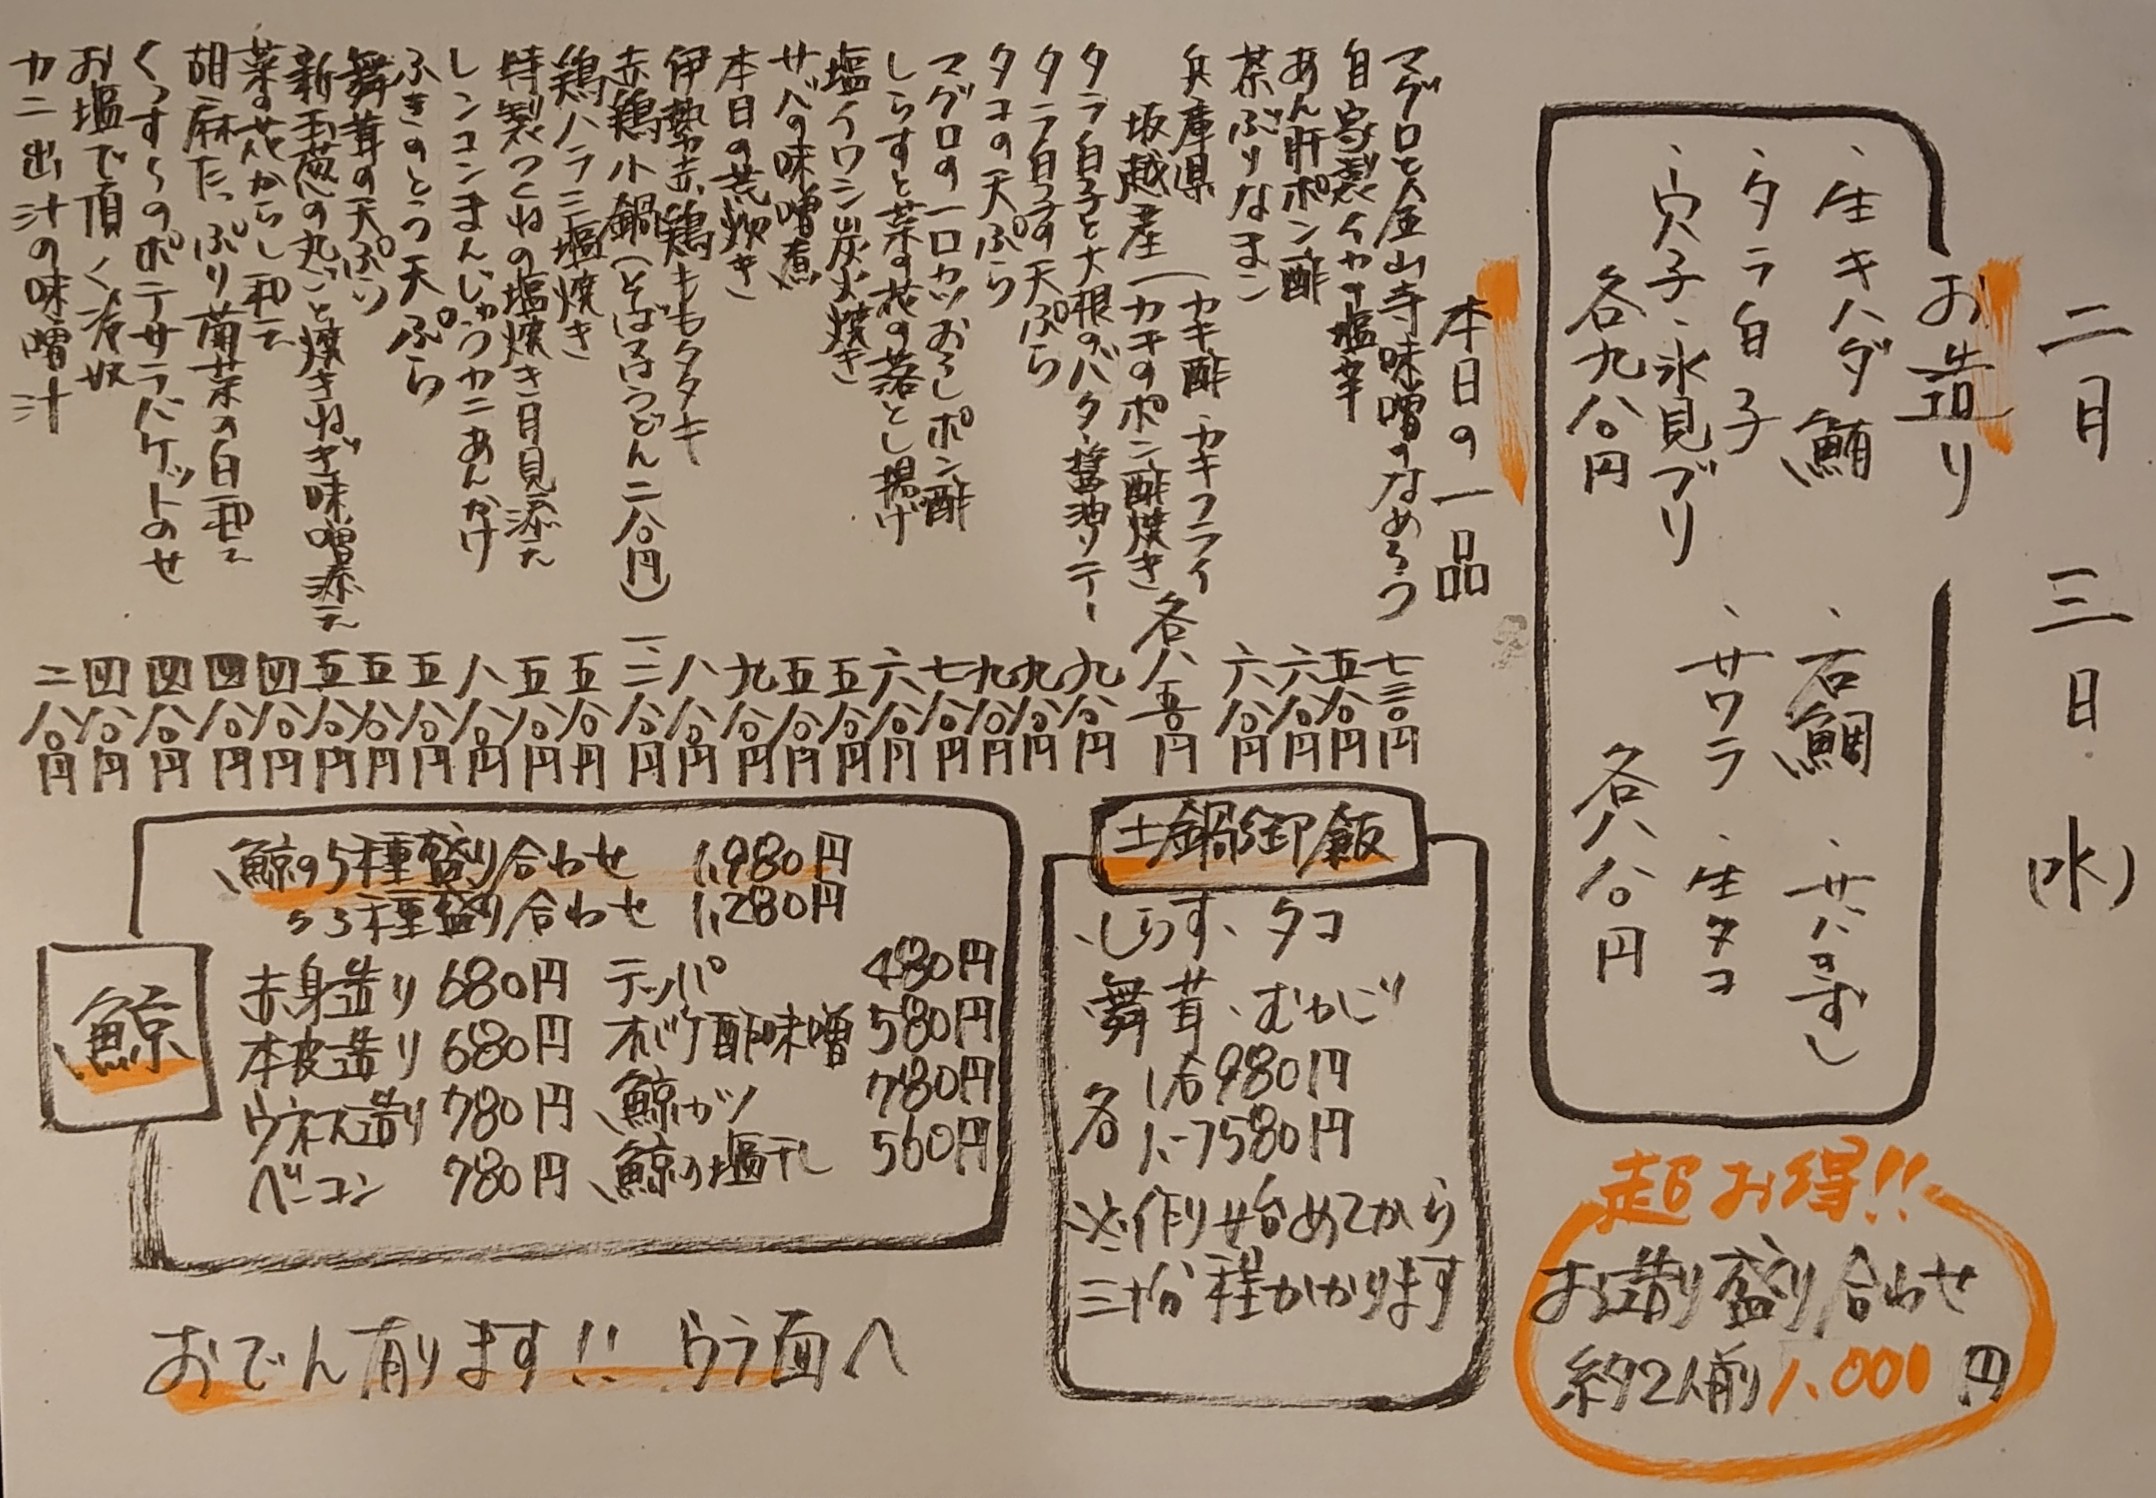 二月三日(水)
お造り
、生キハダ鮪 、石鯛 、サバのすし
、タラ白子 、サワラ 、生タコ
、穴子 、氷見ブリ
各九八〇円 各八八〇円
超お得!!
お造り盛り合わせ
約2人前1,000円
本日の一品
マグロと金山寺味噌のなめろう 七三〇円
自家製イカの塩辛 五八〇円
あん肝ポン酢 六八〇円
茶ぶりなまこ 六八〇円
兵庫県 坂越産(カキ酢、カキフライ
カキのポン酢焼き 各八五〇円
タラ白子と大根のバター醤油ソテー 九八〇円
タラ白子の天ぷら 九八〇円
タコの天ぷら 九八〇円
マグロの一口カツおろしポン酢 七八〇円
しらすと菜の花の落とし揚げ 六八〇円
塩イワシ炭火焼き 五八〇円
サバの味噌煮 五八〇円
本日の荒炊き 九八〇円
伊勢赤鶏ももタタキ 八八〇円
赤鶏小鍋(そば又はうどん二八〇円) 一、二八〇円
鶏ハラミ塩焼き 五八〇円
特製つくねの塩焼き月見添え 五八〇円
レンコンまんじゅうカニあんかけ 八八〇円
ふきのとう天ぷら 五八〇円
舞茸の天ぷら 五八〇円
新玉葱の丸ごと焼きねぎ味噌添え 五八〇円
菜の花からし和え 四八〇円
胡麻たっぷり菊菜の白和え 四八〇円
くんすーのポテサラバケットのせ 四八〇円
お塩で頂く冷奴 四八〇円
カニ出汁の味噌汁 二八〇円
土鍋御飯
、しらす、タコ
舞茸、むかご
各 1合980円
1.5合1580円
※作り始めてから
三十分程かかります
鯨
鯨の5種盛り合わせ 1,980円
〃3種盛り合わせ 1,280円
赤身造り 680円 テッパ 480円
本皮造り 680円 オバケ酢味噌 580円
ウネス造り 780円 鯨カツ 780円
ベーコン 780円 鯨の塩干し 560円
おでん有ります!! ウラ面へ